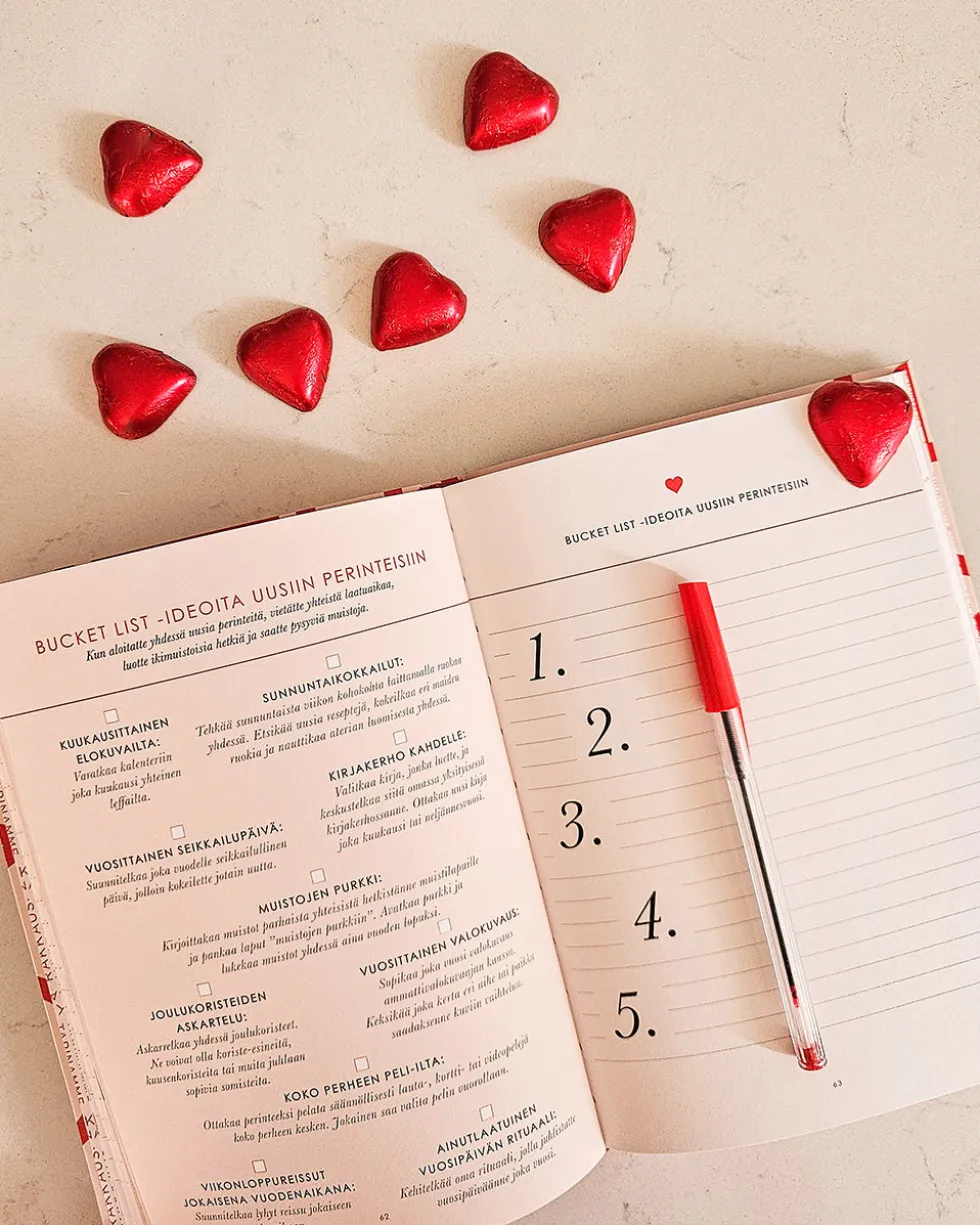 BUCKET LIST -IDEOITA UUSIIN PERINTEISIIN
Kun aloitatte yhdessä uusia perinteitä, vietätte yhteistä laatuaikaa,
luotte ikimuistoisia hetkiä ja saatte pysyviä muistoja.
KUUKAUSITTAINEN
ELOKUVAILTA:
Varatkaa kalenteriin
joka kuukausi yhteinen
leffailta.
SUNNUNTAIKOKKAILUT:
Tehkää sunnuntaista viikon kohokohta laittamalla ruokaa
yhdessä. Etsikää uusia reseptejä, kokeilkaa eri maiden
ruokia ja nauttikaa aterian luomisesta yhdessä.
KIRJAKERHO KAHDELLE:
Valitkaa kirja, jonka luette, ja
keskustelkaa siitä omassa yksityisessä
kirjakerhossanne. Ottakaa uusi kirja
joka kuukausi tai neljännesvuosi.
VUOSITTAINEN SEIKKAILUPÄIVÄ:
Suunnitelkaa joka vuodelle seikkailullinen
päivä, jolloin kokeilette jotain uutta.
MUISTOJEN PURKKI:
Kirjoittakaa muistot parhaista yhteisistä hetkistänne muistilapuille
ja pankaa laput "muistojen purkkiin". Avatkaa purkki ja
lukekaa muistot yhdessä aina vuoden lopuksi.
VUOSITTAINEN VALOKUVAUS:
Sopikaa joka vuosi valokuvaus
ammattivalokuvaajan kanssa.
Keksikää joka kerta eri aihe tai paikka
saadaksenne kuviin vaihtelua.
JOULUKORISTEIDEN
ASKARTELU:
Askarrelkaa yhdessä joulukoristeet.
Ne voivat olla koriste-esineitä,
kuusenkoristeita tai muita juhlaan
sopivia somisteita.
KOKO PERHEEN PELI-ILTA:
Ottakaa perinteeksi pelata säännöllisesti lauta-, kortti- tai videopelejä
koko perheen kesken. Jokainen saa valita pelin vuorollaan.
AINUTLAATUINEN
VUOSIPÄIVÄN RITUAALI:
Kehitelkää oma rituaali, jolla juhlistatte
vuosipäiväänne joka vuosi.
VIIKONLOPPUREISSUT
JOKAISENA VUODENAIKANA:
Suunnitelkaa lyhyt reissu jokaiseen
62
BUCKET LIST -IDEOITA UUSIIN PERINTEISIIN
1.
2.
3.
4.
5.
63